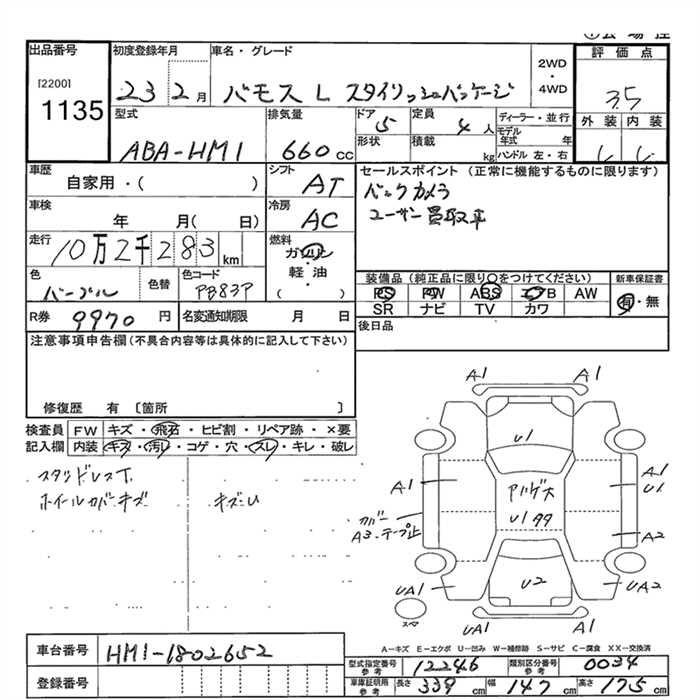 出品番号 初度登録年月 車名・グレード 2WD ・ 4WD 評価点
[2200]
1135
23 2月 バモス L スタイリッシュパッケージ 3.5
型式 排気量 ドア 5 定員 4人 ディーラー・並行 外装 内装
形状 積載 kg モデル年式 年
ABA-HM1 660cc ハンドル 左・右
車歴 シフト セールスポイント(正常に機能するものに限ります)
自家用・( ) AT バックカメラ
車検 冷房 ユーザー買取車
年 月( 日) AC
走行 燃料
10万2千283km ガソリン
・
軽油
色 色替 色コード ( ) 装備品(純正品に限り○をつけてください) 新車保証書
パープル PB83P PS PW ABS エアB AW 有・無
SR ナビ TV カワ
R券 9970円 名変通知期限 月 日 後日品
注意事項申告欄(不具合内容等は具体的に記入して下さい)
修復歴 有 〔箇所 〕
検査員 FW キズ・飛石・ヒビ割・リペア跡・×要
記入欄 内装 キズ・汚レ・コゲ・穴・スレ・キレ・破レ
スタッドレスT
ホイールカバーキズ キズU
A1 A1
U1
A1 A1 U1
カバー
A3・テープ止 U1 A2
UA1 U2 UA2
スペア A1 A1
A-キズ E-エクボ U-凹み W-補修跡 S-サビ C-腐食 XX-交換済
車台番号 HM1-1802652
登録番号
型式指定番号 参考 12246 類別区分番号 参考 0034
車庫証明用 参考 長さ 339cm 幅 147cm 高さ 175cm